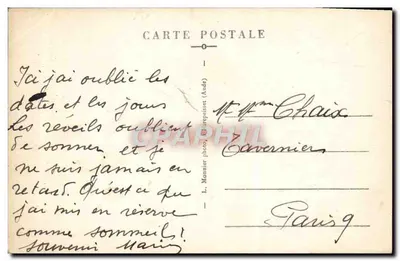 CARTE POSTALE
Ici j'ai oublié les
dates et les jours
Les réveils oublient
de sonner et je
ne suis jamais en
retard. Qu'est ce que
j'ai mis en réserve
comme sommeils!
Souvenir
L. Maunier photo,
(Aude)
Mr Mme Chaix
Tavernier
Paris 9